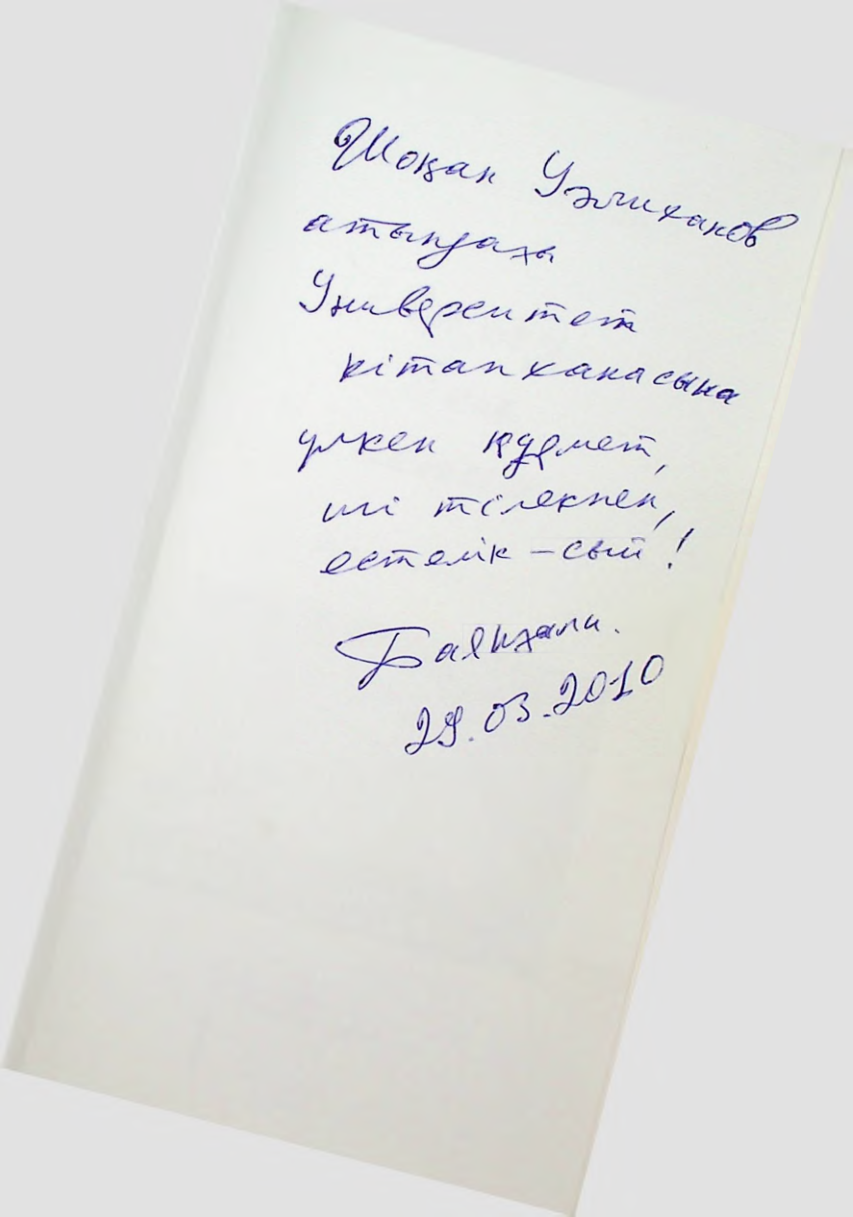 Шоқан Уәлиханов
атындағы
Университет
кітапханасына
үлкен құрмет,
игі тілекпен,
естелік – сый!
Баянғали.
29.03.2010